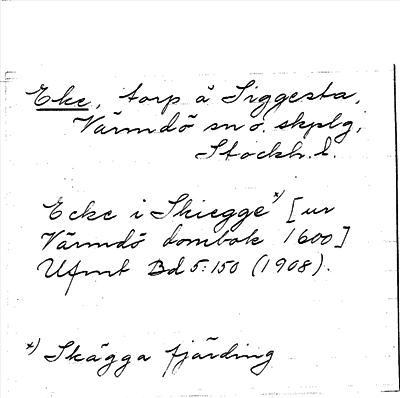 Eke, torp å Siggesta,
Värmdö sn o. skplg,
Stockh. l.
Ecke i Skiegge x) [ur
Värmdö dombok 1600]
Ufmt Bd 5:150 (1908).
x) Skägga fjärding